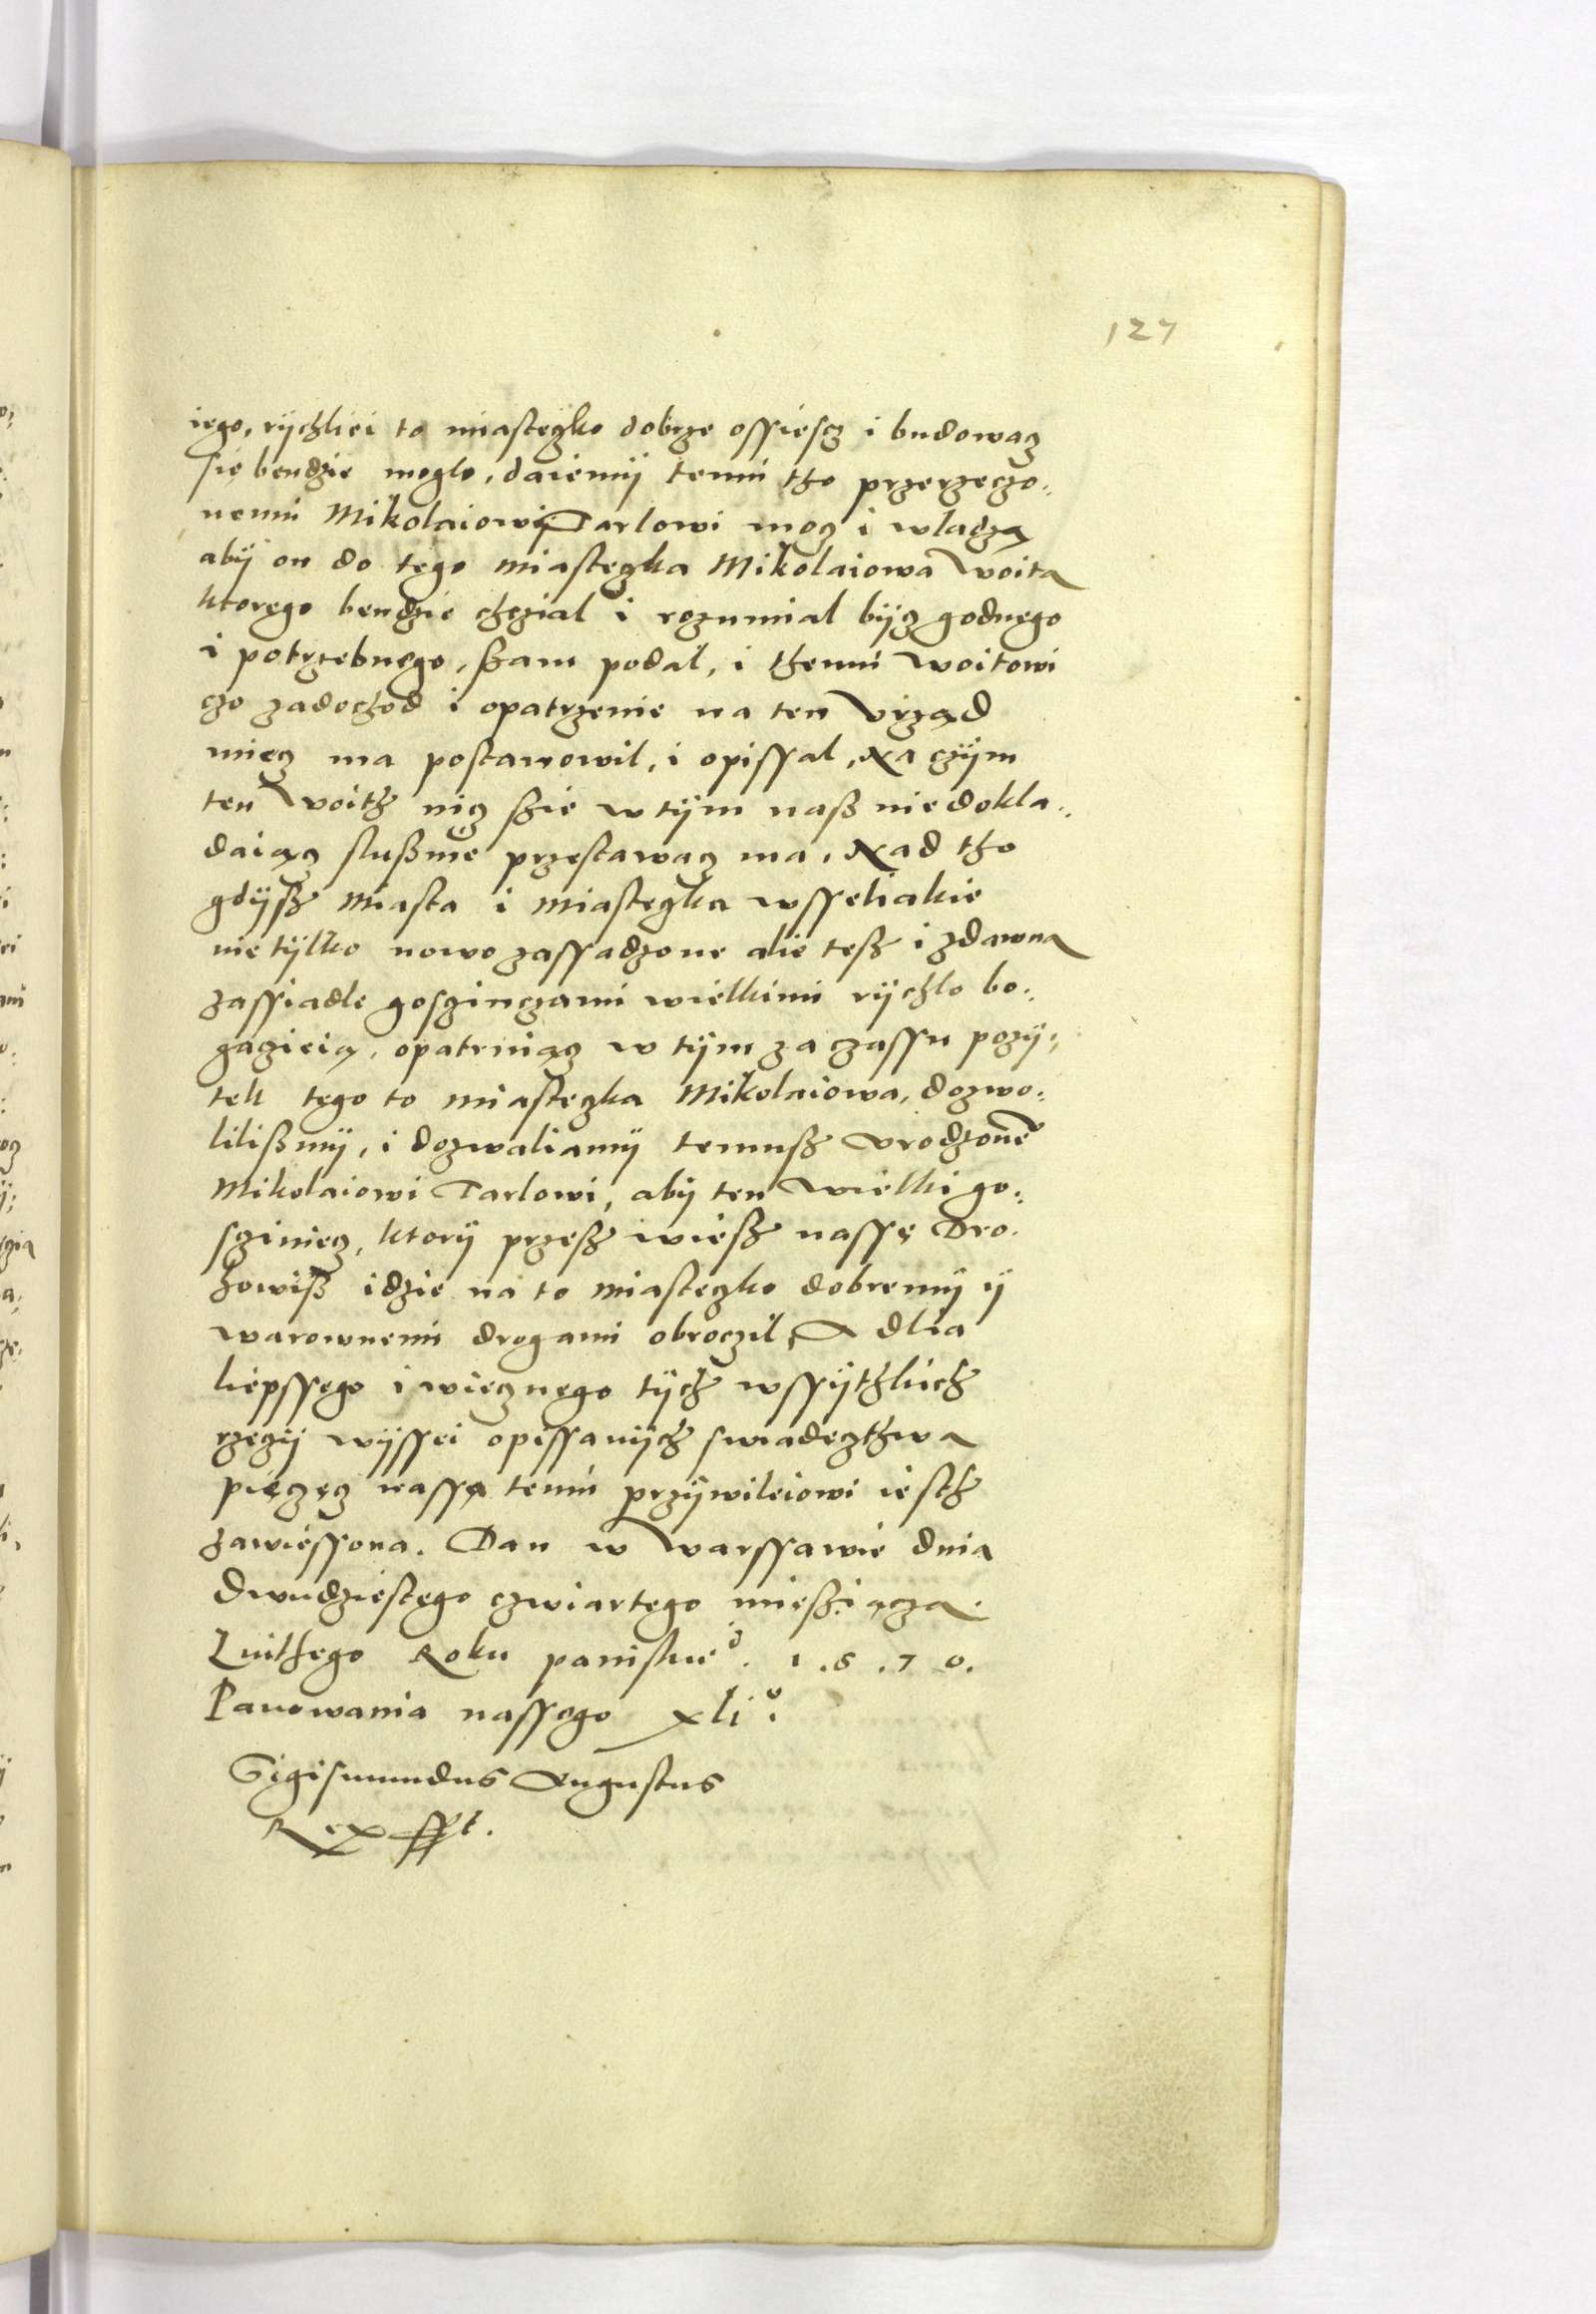 127
iego, rÿchliei to miasteczko dobrze ossiescz i budowacz
się bendzie moglo, daiemÿ temu tho przerzeczo:
nemu Mikolaiowi Tarlowi mocz i wladzą
abÿ on do tego miasteczka Mikolaiowa Woita
ktorego bendzie chczial i rozumial bÿcz godnego
i potrzebnego, sam podal, i themu Woitowi
czo zadochod i opatrzenie na ten Vrząd
miecz ma postanowil, i opissal, Na czÿm
ten Woith nicz szie w tÿm nasz niedokla:
daiącz sluszme przestawacz ma, Nad tho
gdÿsz Miasta i Miasteczka wsseliakie
nie tÿlko nowo zassadzone alie tesz i zdawna
zassiadle goszinczami wielkimi rÿchlo bo:
gaczieią, opatruiącz w tÿm za czassu pozÿ:
tek tego to miasteczka Mikolaiowa, dozwo:
lilismÿ, i dozwaliamÿ temusz vrodzone°
Mikolaiowi Tarlowi, abÿ ten Wielki go:
sziniecz, ktorÿ przesz wiesz nassę Dro:
howisz idzie na to miasteczko dobremÿ ÿ
warownemi drogami obroczil, A dlia
liepssego i wiecznego tÿch wssÿthkich
rzeczÿ wÿssei opissanÿch swiadecztwa
pieczęcz nassą temu przÿwileiowi iesth
zawiessona. Dan w Warssawie dnia
Dwudziestego czwiartego miesziącza
Luithego Roku panskie°. 1.5.7 0.
Panowania nassego xli°.
Sigismundus Augustus
Rex sst.